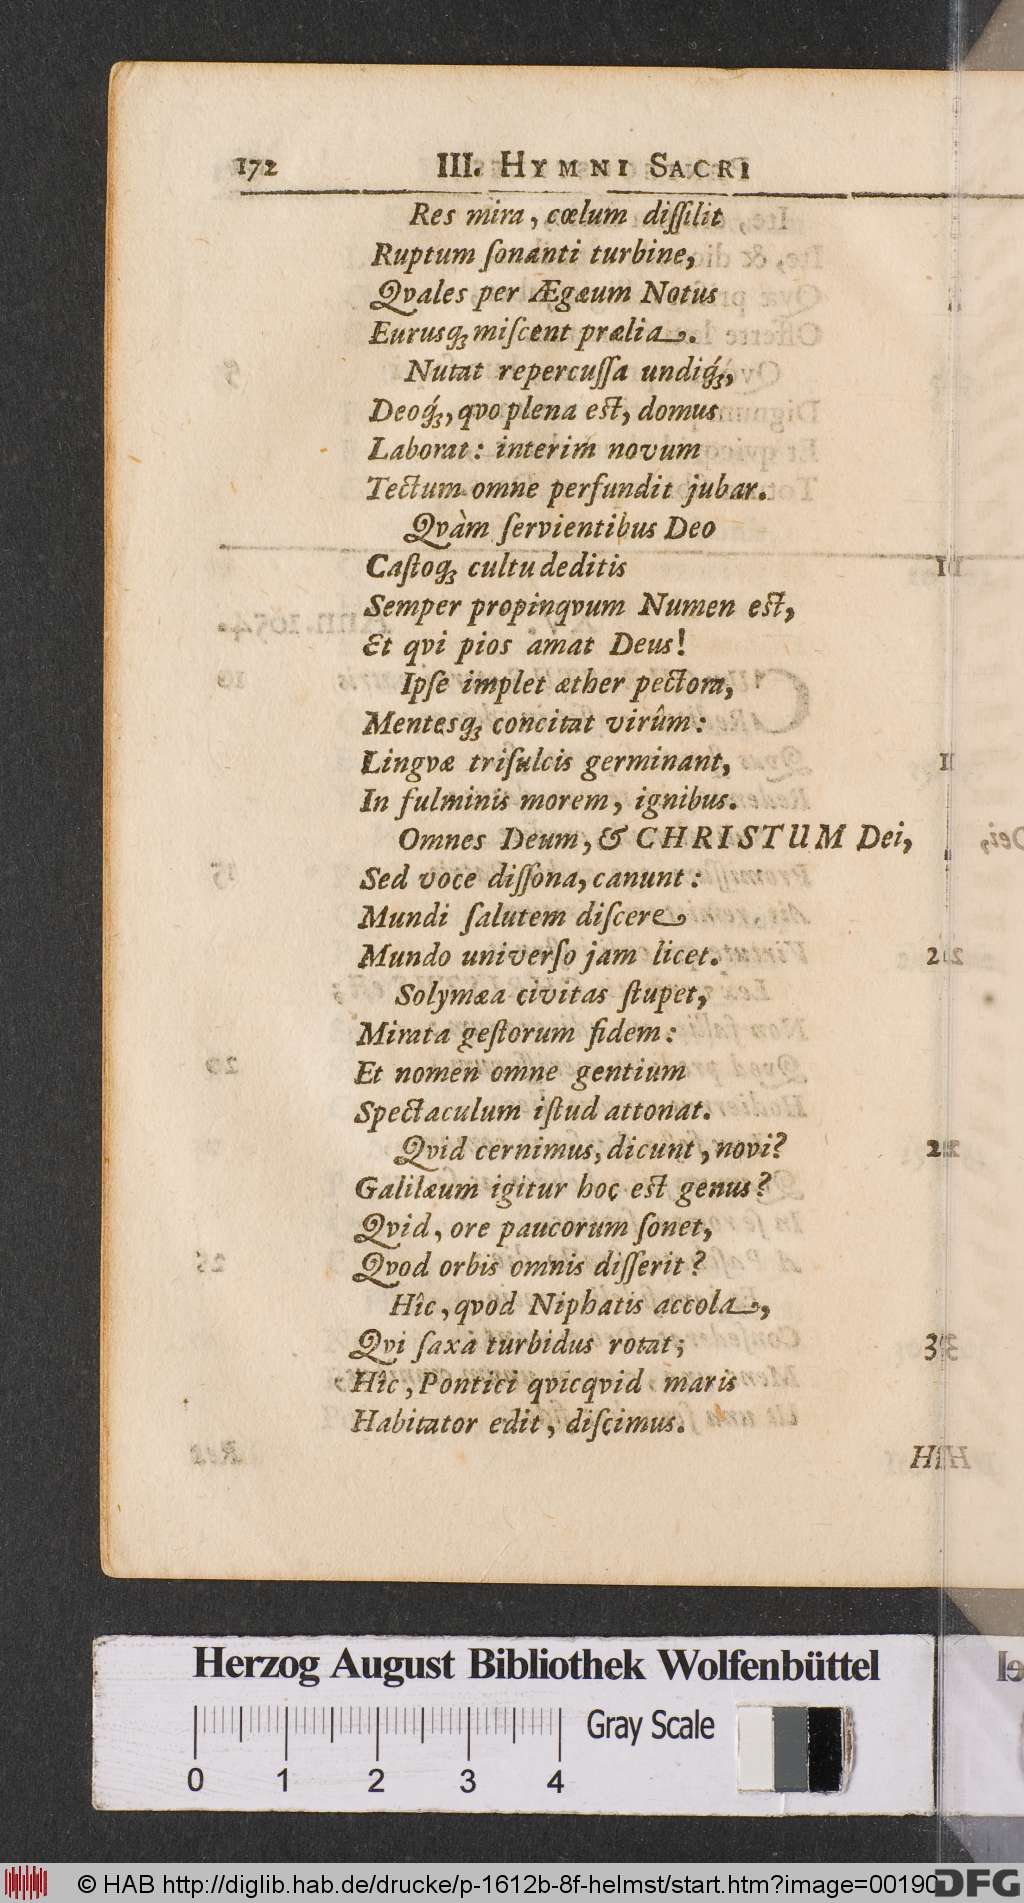 172 III. HYMNI SACRI
Res mira, cœlum diſſilit
Ruptum ſonanti turbine,
Qvales per Ægæum Notus
Eurusq́ꝫ miſcent prælia.
Nutat repercuſſa undiq́ꝫ,
Deoq́ꝫ, qvo plena est, domus
Laborat: interim novum
Tectum omne perfundit jubar.
Qvàm ſervientibus Deo
Caſtoqꝫ cultu deditis
Semper propinqvum Numen est,
Et qvi pios amat Deus!
Ipſe implet æther pectora,
Mentesqꝫ concitat virûm:
Lingvæ triſulcis germinant,
In fulminis morem, ignibus.
Omnes Deum, & CHRISTUM Dei,
Sed voce diſſona, canunt:
Mundi ſalutem diſcere
Mundo univerſo jam licet.
Solymæa civitas ſtupet,
Mirata geſtorum fidem:
Et nomen omne gentium
Spectaculum iſtud attonat.
Qvid cernimus, dicunt, novi?
Galilæum igitur hoc est genus?
Qvid, ore paucorum ſonet,
Qvod orbis omnis diſſerit?
Hîc, qvod Niphatis accola,
Qvi ſaxa turbidus rotat;
Hîc, Pontici qvicqvid maris
Habitator edit, diſcimus.
Herzog August Bibliothek Wolfenbüttel
Gray Scale
0 1 2 3 4
© HAB http://diglib.hab.de/drucke/p-1612b-8f-helmst/start.htm?image=00190
DFG